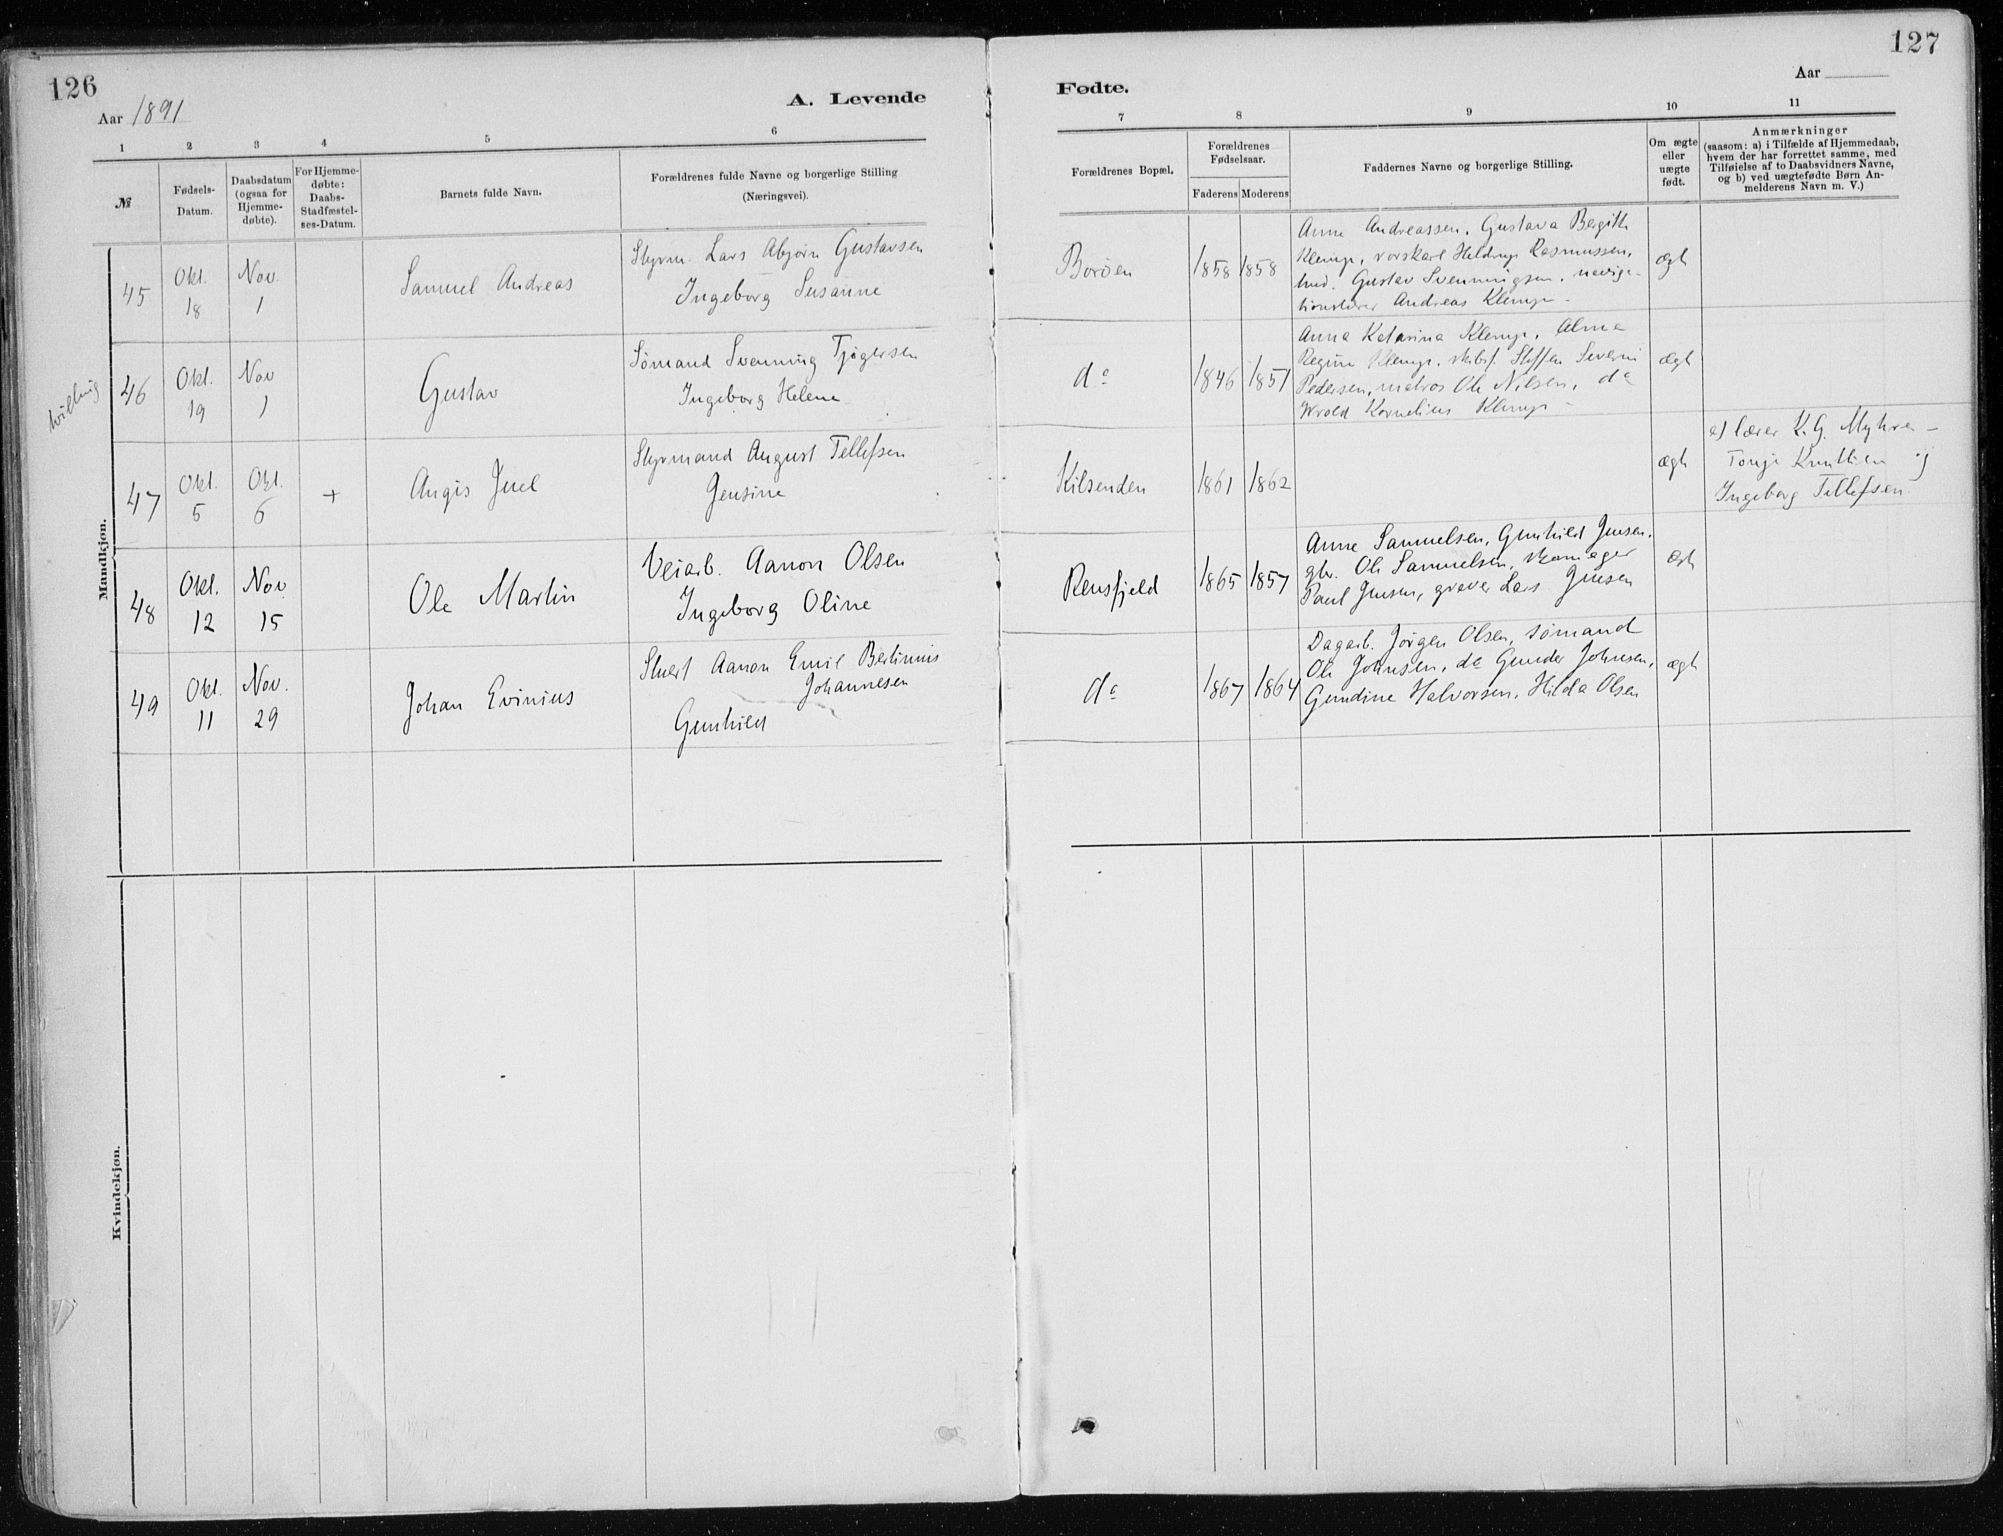 126
Aar 1891
A. Levende
1 2 3 4 5 6
№
Fødsels-
Datum.
Daabsdatum
(ogsaa for
Hjemme-
døbte).
For Hjemme-
døbte:
Daabs-
Stadfæstel-
ses-Datum.
Barnets fulde Navn.
Forældrenes fulde Navne og borgerlige Stilling
(Næringsvei).
Mandkjøn.
45
Okt.
18
Nov.
1
Samuel Andreas
Styrm. Lars Abjørn Gustavsen
Ingeborg Susanne
tvilling
46
Okt.
19
Nov
1
Gustav
Sømand Svenning Tjøgersen
Ingeborg Helene
47
Okt.
5
Okt.
6
+
Angis Juel
Styrmand August Tellefsen
Jensine
48
Okt.
12
Nov
15
Ole Martin
Veiarb. Aanon Olsen
Ingeborg Oline
49
Okt.
11
Nov.
29
Johan Evinius
Stuert Aanon Emil Bertinius
Johannesen
Gunhild
Kvindekjøn.
127
Aar
Fødte.
7 8 9 10 11
Forældrenes Bopæl.
Forældrenes
Fødselsaar.
Faderens Moderens
Faddernes Navne og borgerlige Stilling.
Om ægte
eller
uægte
født.
Anmærkninger
(saasom: a) i Tilfælde af Hjemmedaab,
hvem der har forrettet samme, med
Tilføielse af to Daabsvidners Navne,
og b) ved uægtefødte Børn An-
melderens Navn m. V.)
Borøen
1858 1858
Anne Andreassen, Gustava Bergith
Klemp, Heldrup Rasmussen,
Gustav Svenningsen, naviga-
tionslærer Andreas Klemp
ægt
do
1846 1851
Anna Katarina Klemp, Alma
Regine Klemp, skibsf. Steffen Severin
Pedersen, matros Ole Nilsen, do
Kornelius Klemp
ægt
Kilsenden
1861 1862
ægt
a) lærer K. G. Myhre
Tonje Knutsen og
Ingeborg Tellefsen
Rensfjeld
1865 1857
Anne Samuelsen, Gunhild Jensen,
gbr. Ole Samuelsen, skomager
Paul Jensen, graver Lars Jensen
ægt
do
1867 1864
Dagarb. Jørgen Olsen, sømand
Ole Johnsen, do Gunder Johnsen,
Gundine Halvorsen, Hilda Olsen
ægt